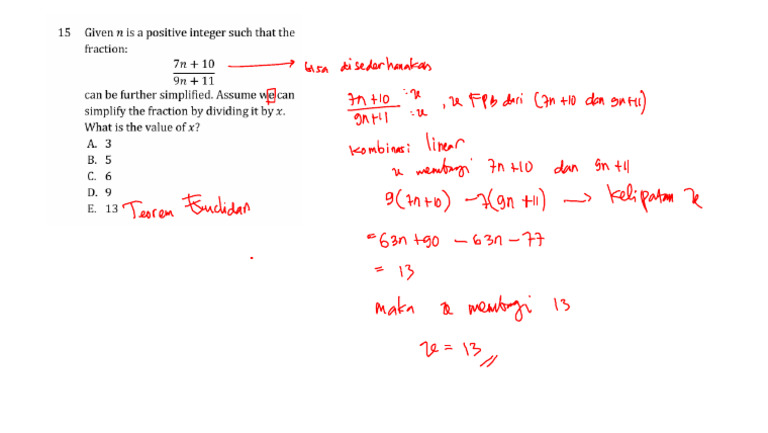 15 Given n is a positive integer such that the
fraction:
7n + 10
9n + 11
bisa disederhanakan
can be further simplified. Assume we can
simplify the fraction by dividing it by x.
What is the value of x?
A. 3
B. 5
C. 6
D. 9
E. 13
Teorem Euclidan
7n + 10 : x
9n + 11 : x
, x FPB dari (7n + 10 dan 9n + 11)
Kombinasi linear
x membagi 7n + 10 dan 9n + 11
9(7n + 10) - 7(9n + 11) → Kelipatan x
= 63n + 90 - 63n - 77
= 13
maka x membagi 13
x = 13 //